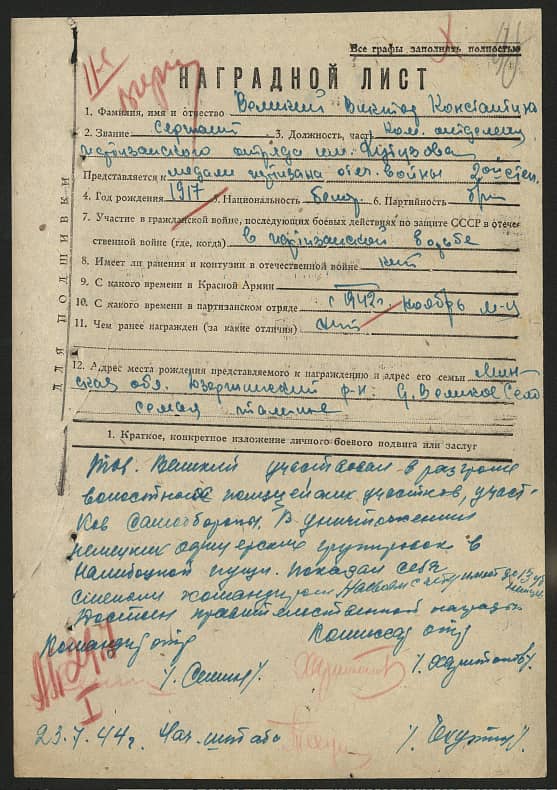 Все графы заполнить полностью
11-е
НАГРАДНОЙ ЛИСТ
1. Фамилия, имя и отчество Великий Виктор Константина
2. Звание сержант 3. Должность, часть ком. отделен.
партизанского отряда им. Кутузова
Представляется к медали партизана отеч. войны 2ой степ.
4. Год рождения 1917 5. Национальность белор. 6. Партийность б/п
7. Участие в гражданской войне, последующих боевых действиях по защите СССР в отече-
ственной войне (где, когда) в партизанской борьбе
8. Имеет ли ранения и контузии в отечественной войне нет
9. С какого времени в Красной Армии
10. С какого времени в партизанском отряде с 1942 г. ноябрь м-ц
11. Чем ранее награжден (за какие отличия) нет
ДЛЯ ПОДШИВКИ
12. Адрес места рождения представляемого к награждению и адрес его семьи Мин-
ская обл. Дзержинский р-н. д. Великое Село
семья там же
1. Краткое, конкретное изложение личного боевого подвига или заслуг
Тов. Великий участвовал в разгроме
волостного полицейских участков, участ-
ков самообороны, В уничтожении
немецких группировок в
Налибоцкой пущи. Показал себя
смелым командиром
Достоин правительственной награды
Командир отр. Комиссар отр.
/. Харитонов /.
23.7.44 г. Нач. штаба